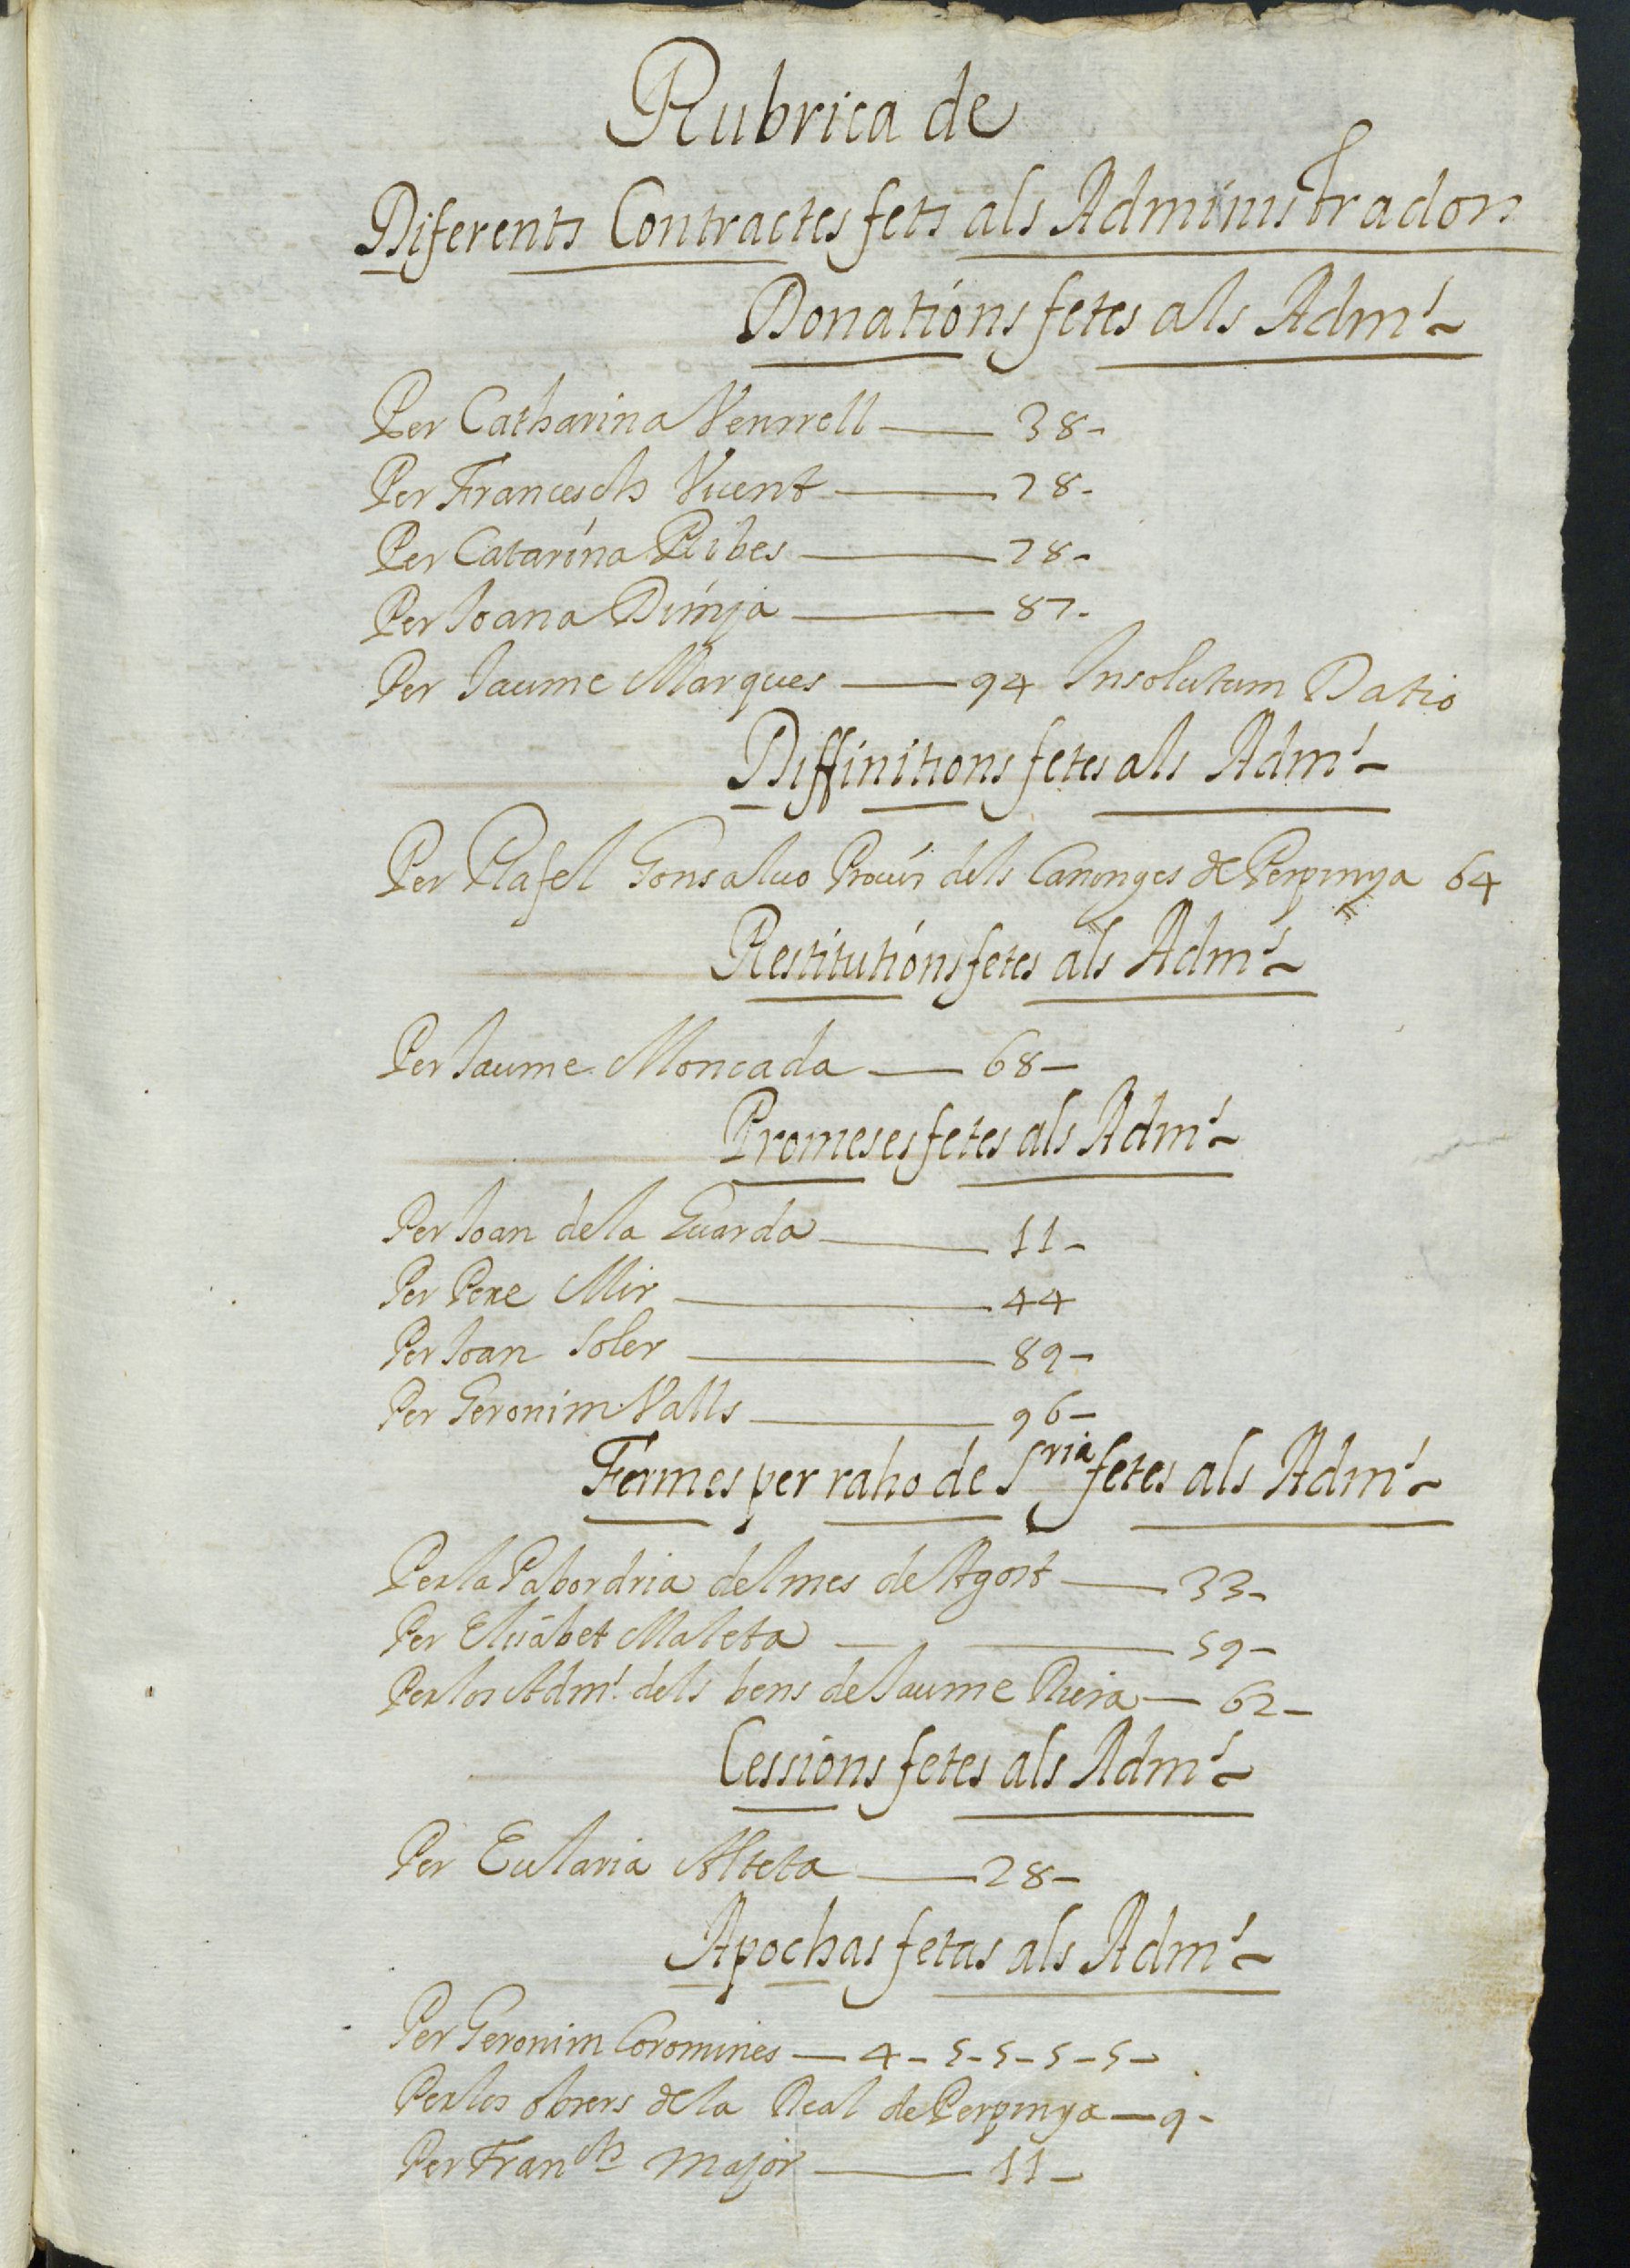 Rubrica de
Diferents Contractes fets als Administradors
Donations fetes als Adm.ˢ
Per Catharina Venrrell — 38-
Per Francesch Vicent — 28-
Per Catarina Ribes — 28-
Per Joana — 87-
Per Jaume Marques — 94 Insolutum Datio
Diffinitions fetes als Adm.ˢ
Per Rafel Gonsalvo Procur dels Canonges de Perpinya 64
Restitutions fetes als Adm.ˢ
Per Jaume Moncada — 68-
Promeses fetes als Adm.ˢ
Per Joan de la Guarda — 11-
Per Pere Mir — 44
Per Joan Soler — 89-
Per Geronim Valls — 96-
Fermes per raho de Sria fetes als Adm.ˢ
Per la Pabordria del mes de Agost — 33-
Per Elisabet Maleta — 59-
Per los Adm.ˢ dels bens de Jaume Riera — 62-
Cessions fetes als Adm.ˢ
Per Eularia — 28-
Apochas fetas als Adm.ˢ
Per Geronim Coromines — 4-5-5-5-5-
Per los obrers de la Real de Perpinya — 9-
Per Franch Major — 11-